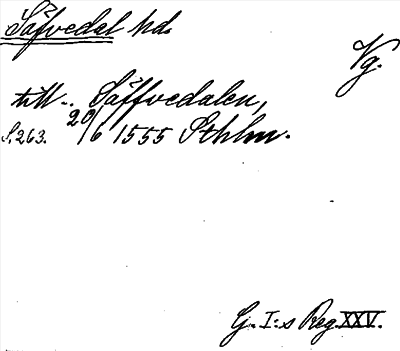 Säfvedel hd.
Vg.
till.. Säffvedalen,
S. 263. 20/6 1555 Sthlm.
G. I:s Reg. XXV.